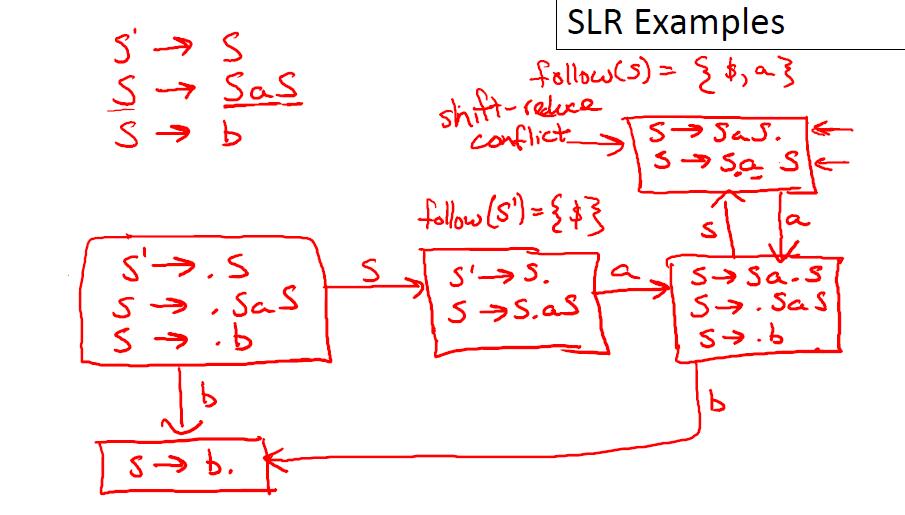 SLR Examples
S' → S
S → SaS
S → b
follow(S) = { $, a }
shift-reduce
conflict
S → SaS.
S → S.a S
follow(S') = { $ }
S
a
S' → .S
S → .SaS
S → .b
S
S' → S.
S → S.aS
a
S → Sa.S
S → .SaS
S → .b
b
b
S → b.